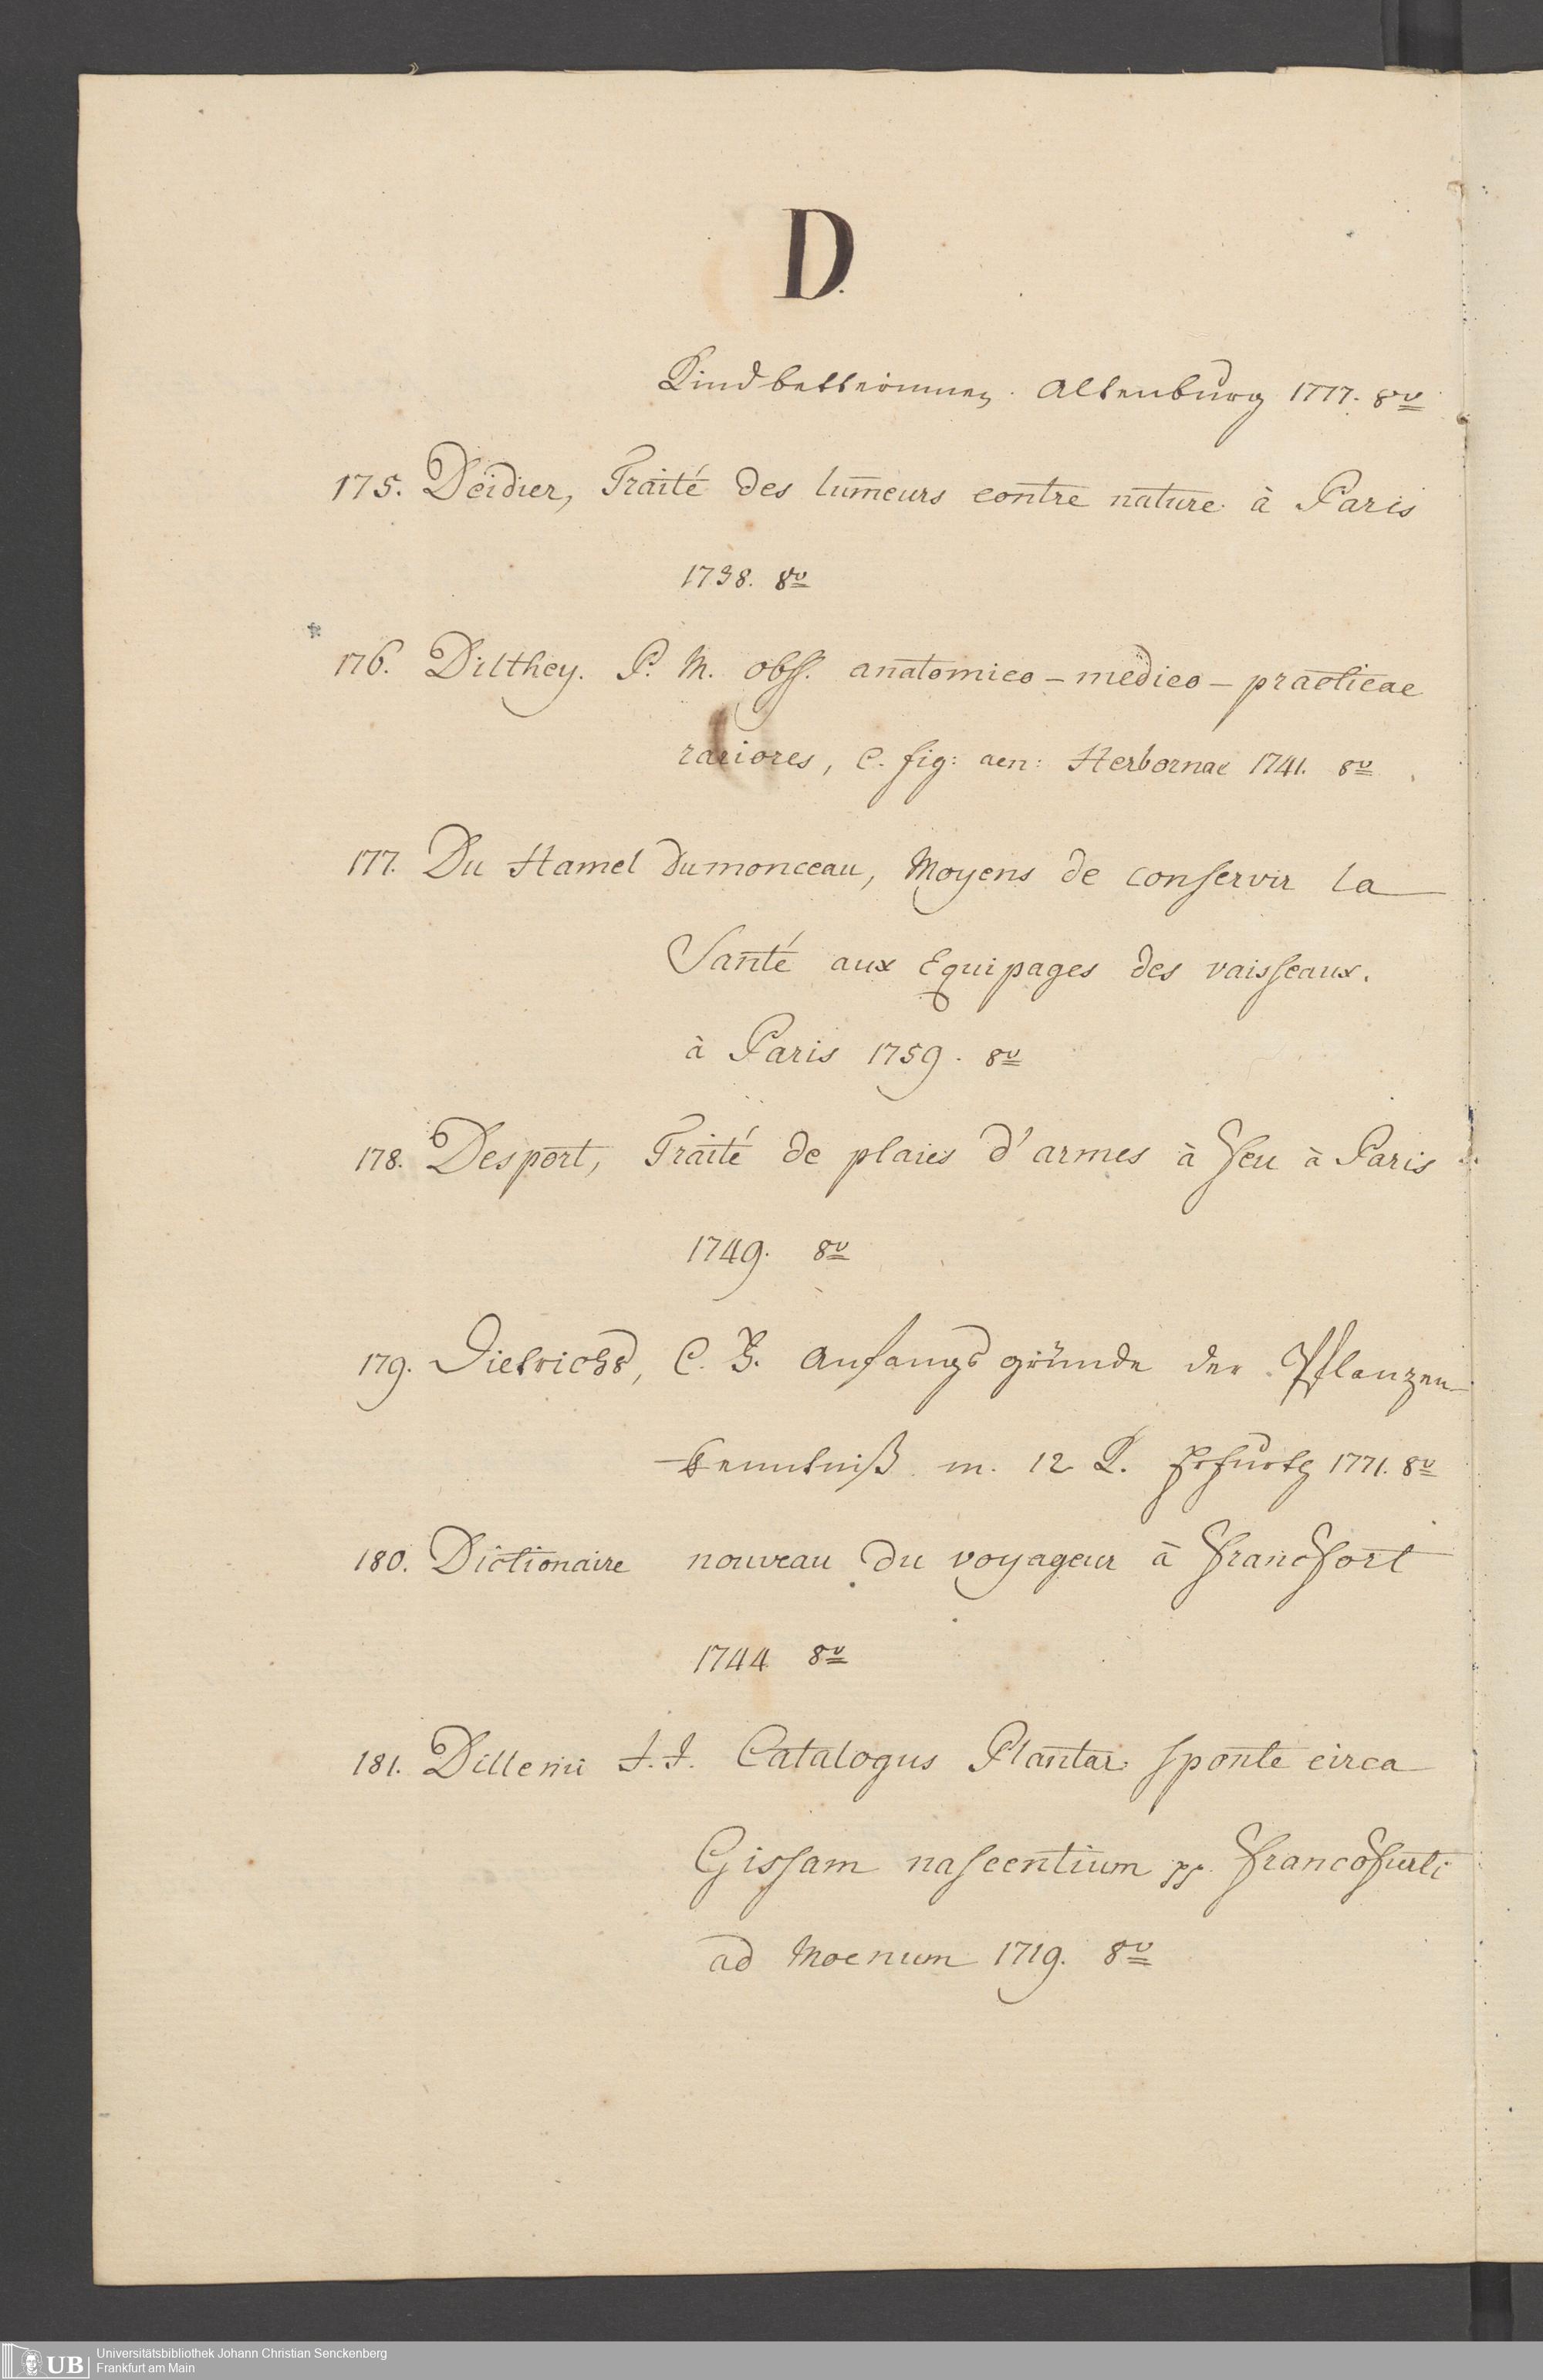 D.
Kindbetterinnen. Altenburg 1777. 8v
175. Deidier, Traité des tumeurs contre nature. à Paris
1738. 8v
* 176. Dilthey. P. M. obss. anatomico - medico - practicae
rariores, c. fig: aen: Herbornae 1741. 8v
177. Du Hamel dumonceau, Moyens de conservir la
Santé aux Equipages des vaisseaux.
à Paris 1759. 8v
178. Desport, Traité de plaies d'armes à feu à Paris
1749. 8v
179. Dietrichs, C. F. Anfangsgründe der Pflanzen-
kenntniß m. 12 K. Erfurth 1771. 8v
180. Dictionaire nouveau du voyageur à francfort
1744 8v
181. Dillenii J. J. Catalogus Plantar. sponte circa
Gissam nascentium pp. francofurti
ad Moenum 1719. 8v
UB Universitätsbibliothek Johann Christian Senckenberg
Frankfurt am Main